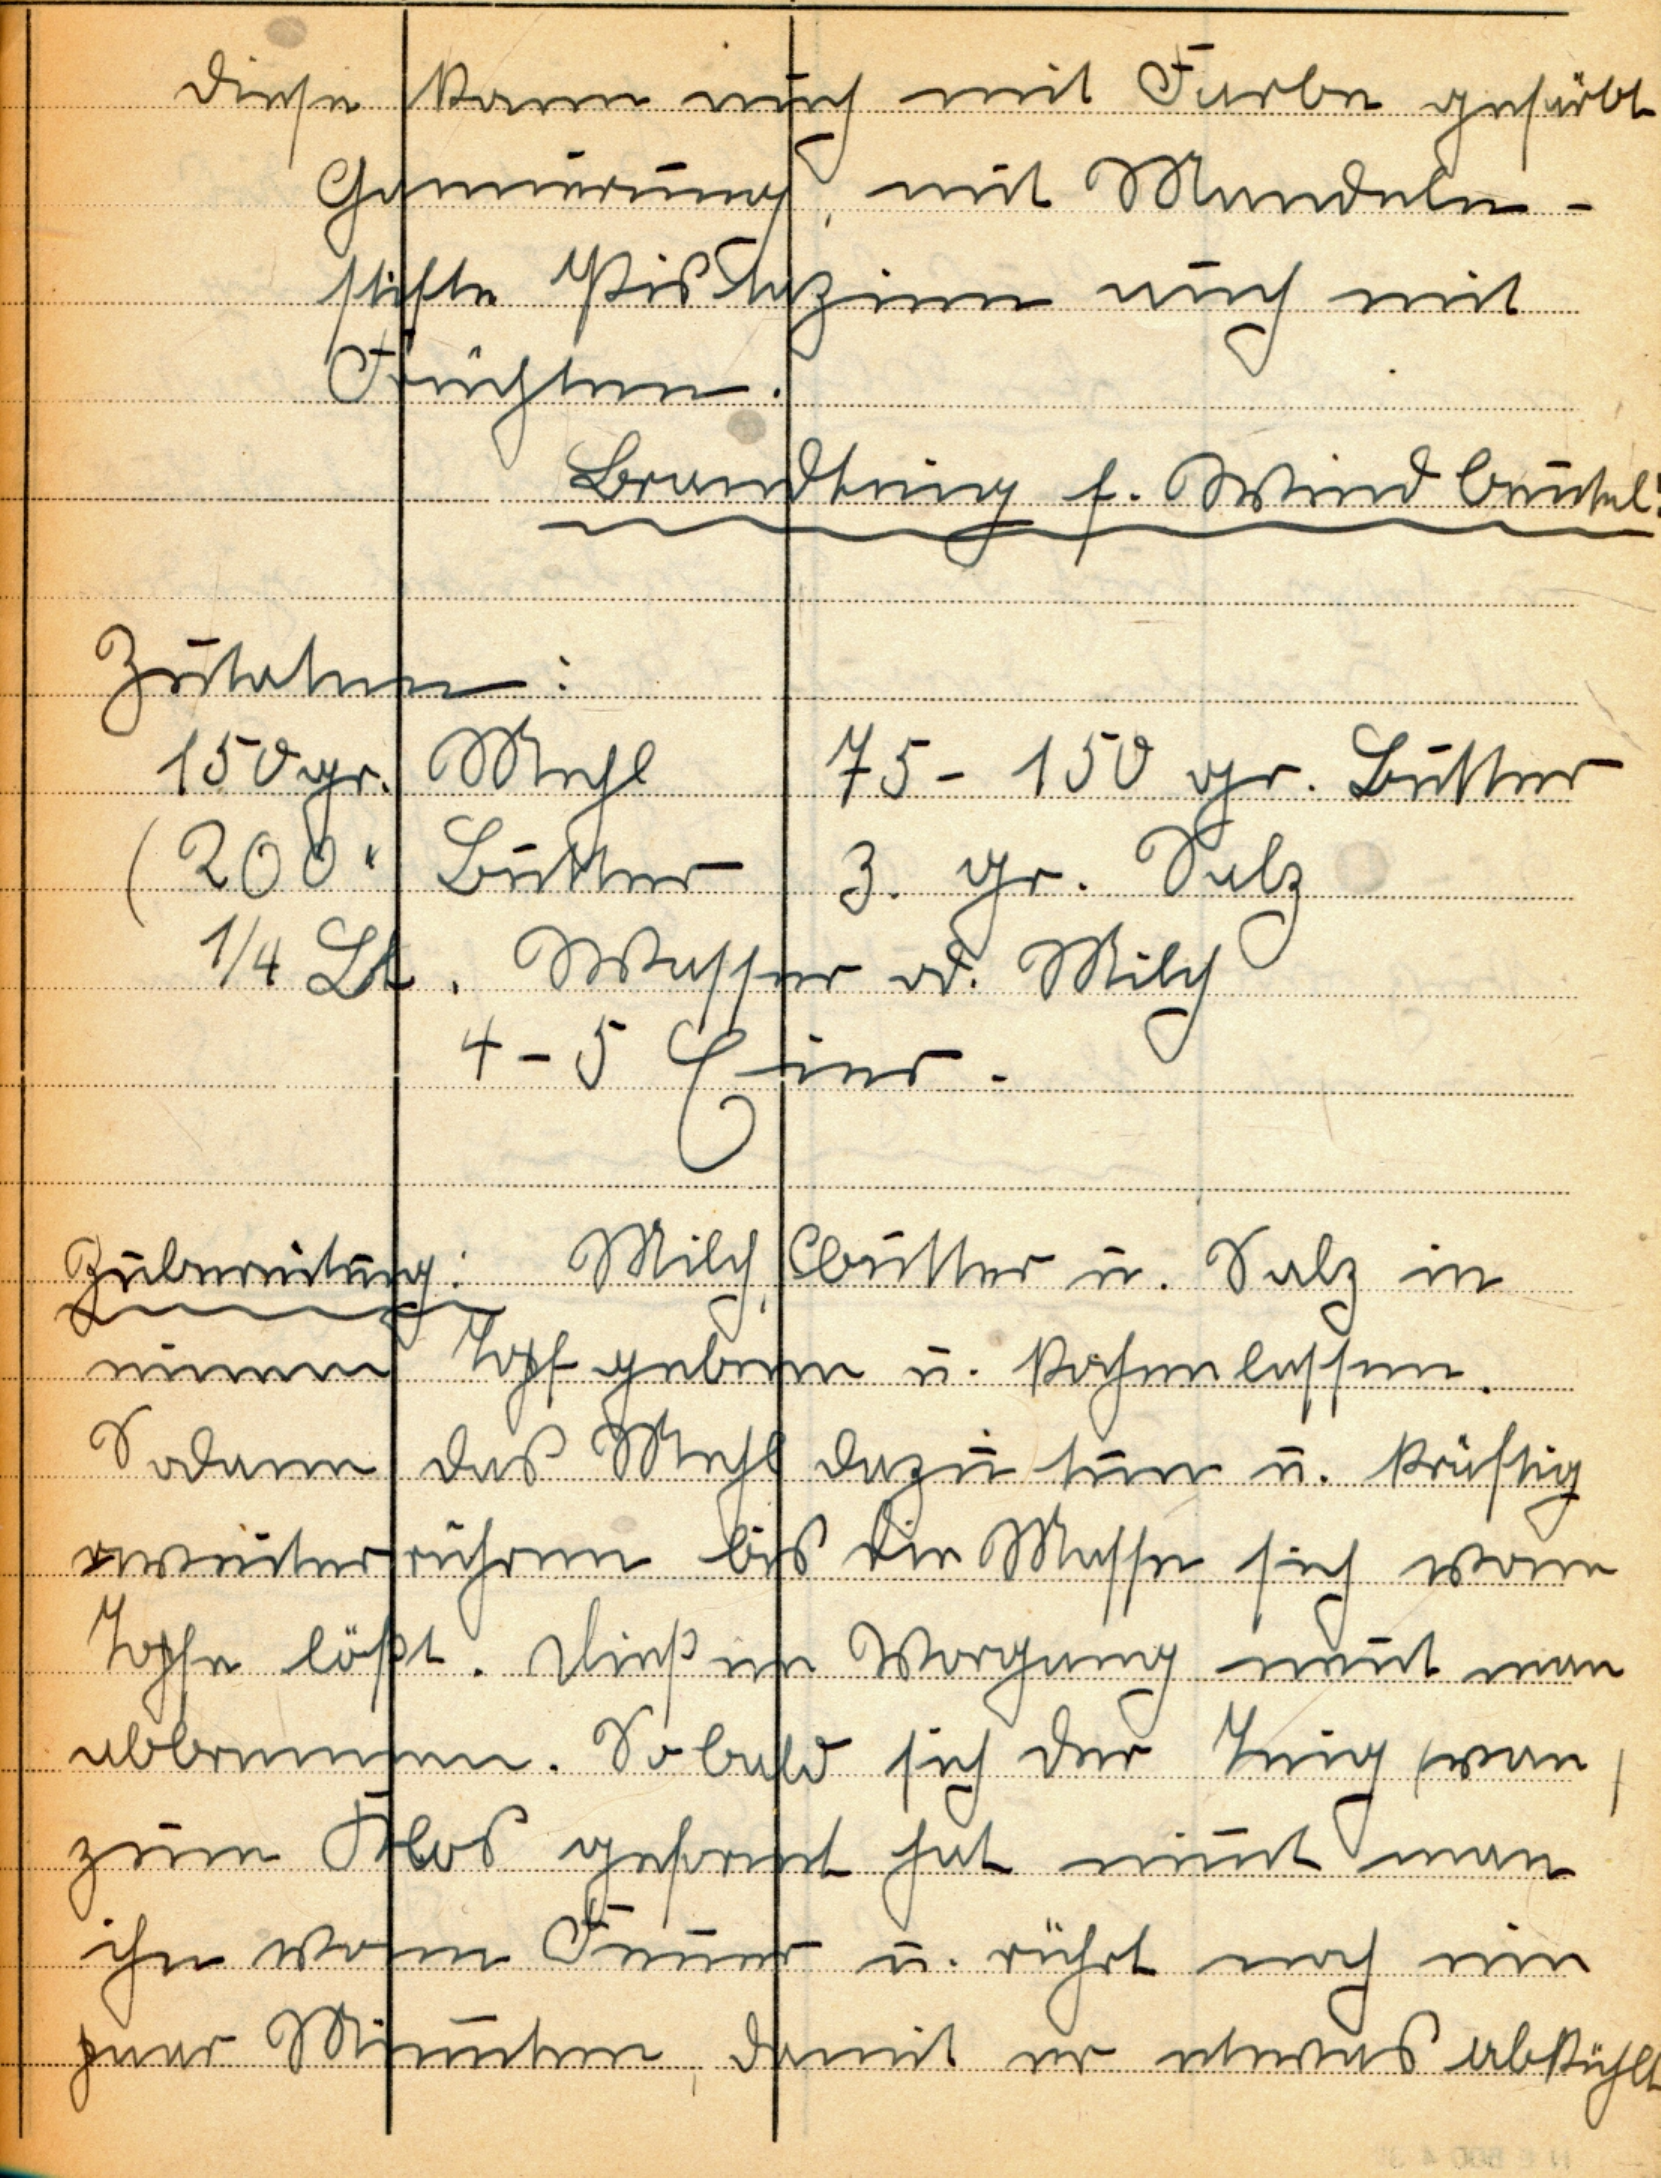 diese kann auch mit Farbe gefärbt
Garnierung, mit Mandeln-
stifte Pistazien auch mit
Früchten.
Brandteig f. Windbeutel:
Zutaten:
150 gr. Mehl 75 - 150 gr. Butter
(200 " Butter 3. gr. Salz
1/4 Lt. Wasser od. Milch
4 - 5 Eier.
Zubereitung: Milch, Butter u. Salz in
einen Topf geben u. kochen lassen.
Sodann das Mehl dazu tun u. kräftig
weiter rühren bis die Masse sich vom
Topfe lößt. Dießen Vorgang nent man
abbrennen. Sobald sich der Teig (von)
zum Klos geformt hat nimt man
ihn vom Feuer u. rührt noch ein
paar Minuten, damit er etwas abkühlt